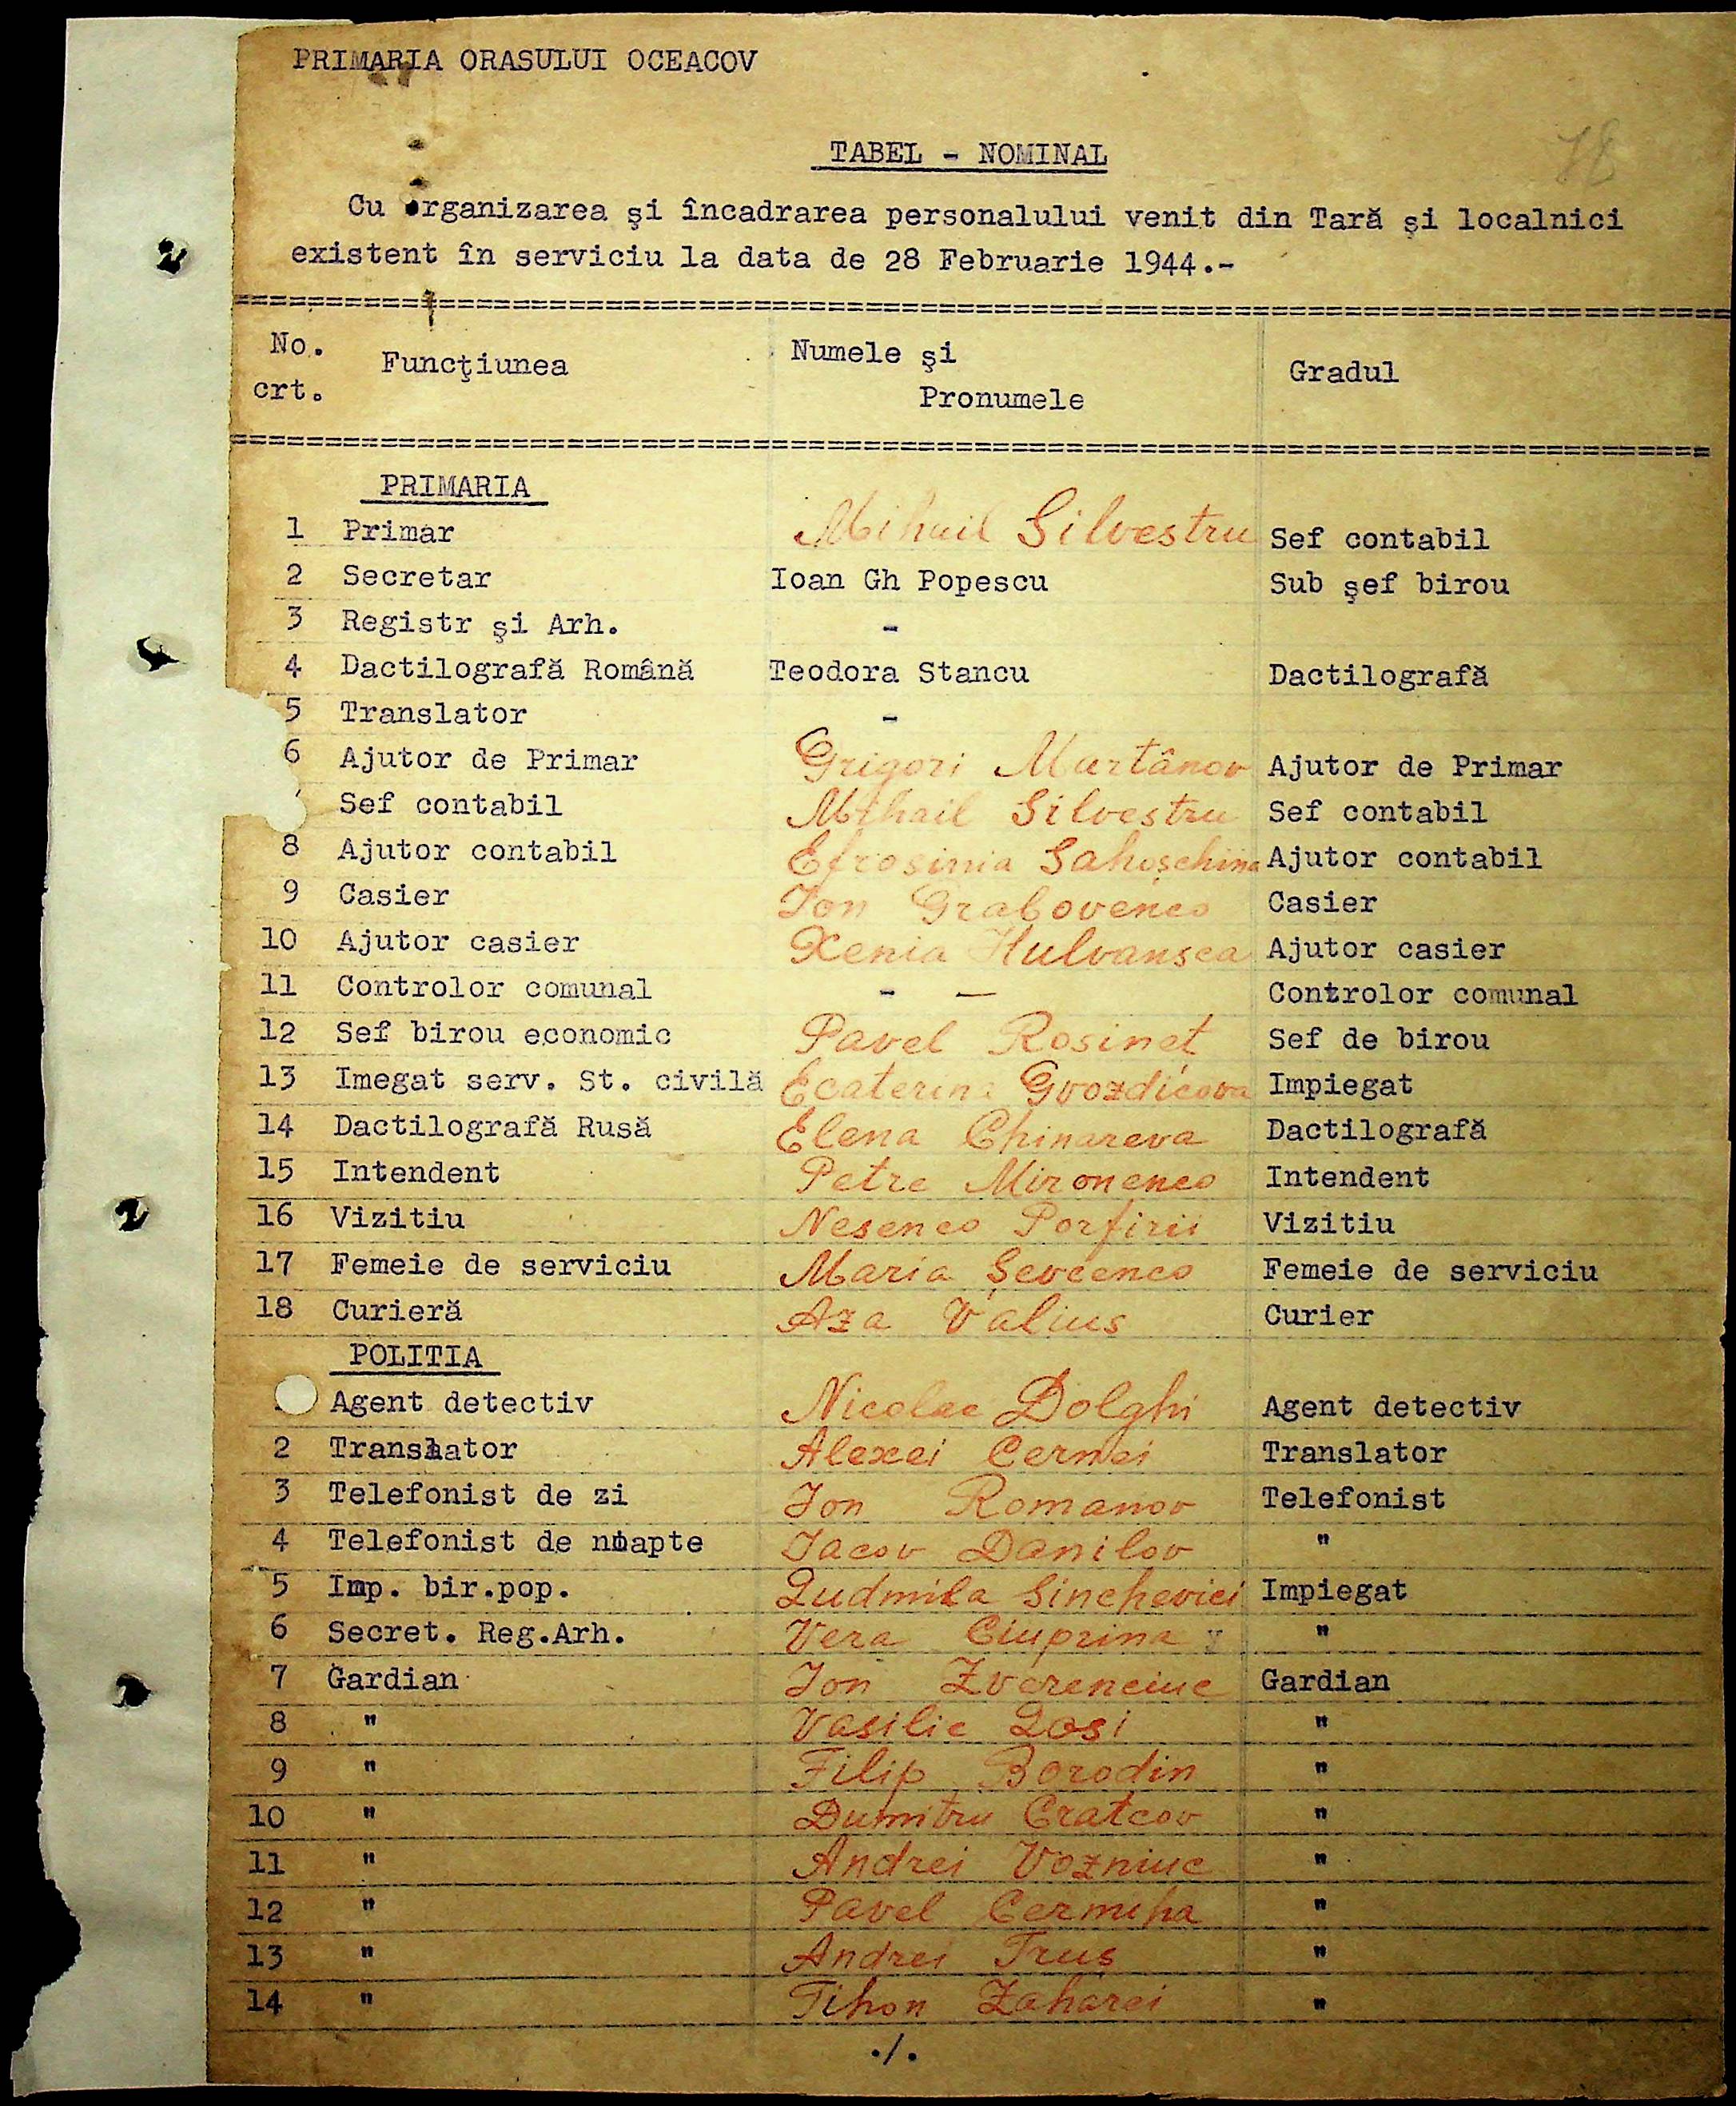 PRIMARIA ORASULUI OCEACOV
78
TABEL - NOMINAL
Cu organizarea şi încadrarea personalului venit din Tară şi localnici
existent în serviciu la data de 28 Februarie 1944.-
No. crt. Funcţiunea Numele şi Pronumele Gradul
PRIMARIA
1 Primar Mihail Silvestru Sef contabil
2 Secretar Ioan Gh Popescu Sub şef birou
3 Registr şi Arh. -
4 Dactilografă Română Teodora Stancu Dactilografă
5 Translator -
6 Ajutor de Primar Grigori Martânov Ajutor de Primar
Sef contabil Mihail Silvestru Sef contabil
8 Ajutor contabil Efrosinia Sahoşchina Ajutor contabil
9 Casier Ion Grabovenco Casier
10 Ajutor casier Xenia Hulvansca Ajutor casier
11 Controlor comunal - — Controlor comunal
12 Sef birou economic Pavel Rosinet Sef de birou
13 Imegat serv. St. civilă Ecaterina Gvozdicova Impiegat
14 Dactilografă Rusă Elena Chinareva Dactilografă
15 Intendent Petre Mironenco Intendent
16 Vizitiu Nesenco Porfirii Vizitiu
17 Femeie de serviciu Maria Şevcenco Femeie de serviciu
18 Curieră Aza Valius Curier
POLITIA
Agent detectiv Nicolae Dolghi Agent detectiv
2 Translator Alexei Cernei Translator
3 Telefonist de zi Ion Romanov Telefonist
4 Telefonist de noapte Iacov Danilov "
5 Imp. bir.pop. Ludmila Sinchevici Impiegat
6 Secret. Reg.Arh. Vera Ciuprina "
7 Gardian Ion Zverenciuc Gardian
8 " Vasilie Losi "
9 " Filip Borodin "
10 " Dumitru Cratcov "
11 " Andrei Vozniuc "
12 " Pavel "
13 " Andrei Truş "
14 " Tihon Zaharei "
./.